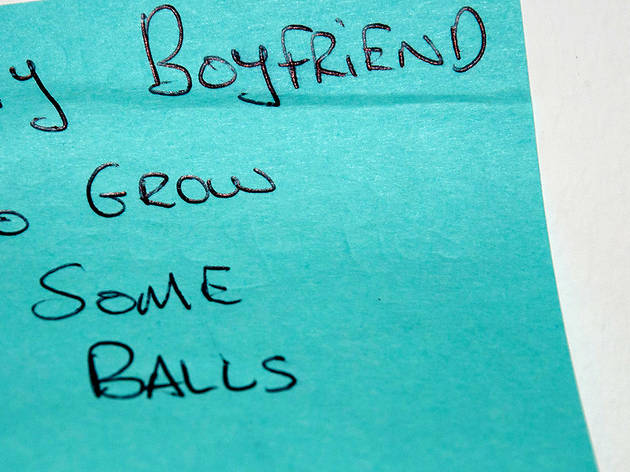 y BOYFRIEND
o GROW
SOME
BALLS